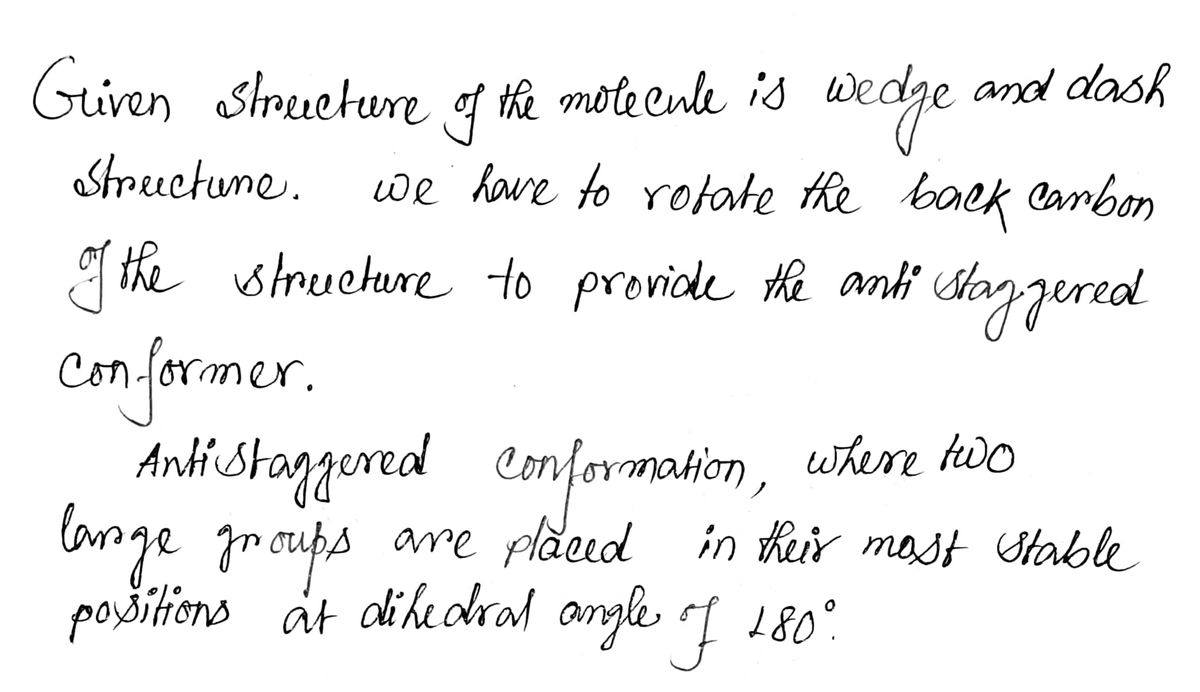 Given structure of the molecule is wedge and dash
structure. we have to rotate the back carbon
of the structure to provide the anti staggered
conformer.
Anti staggered conformation, where two
large groups are placed in their most stable
positions at dihedral angle of 180°.